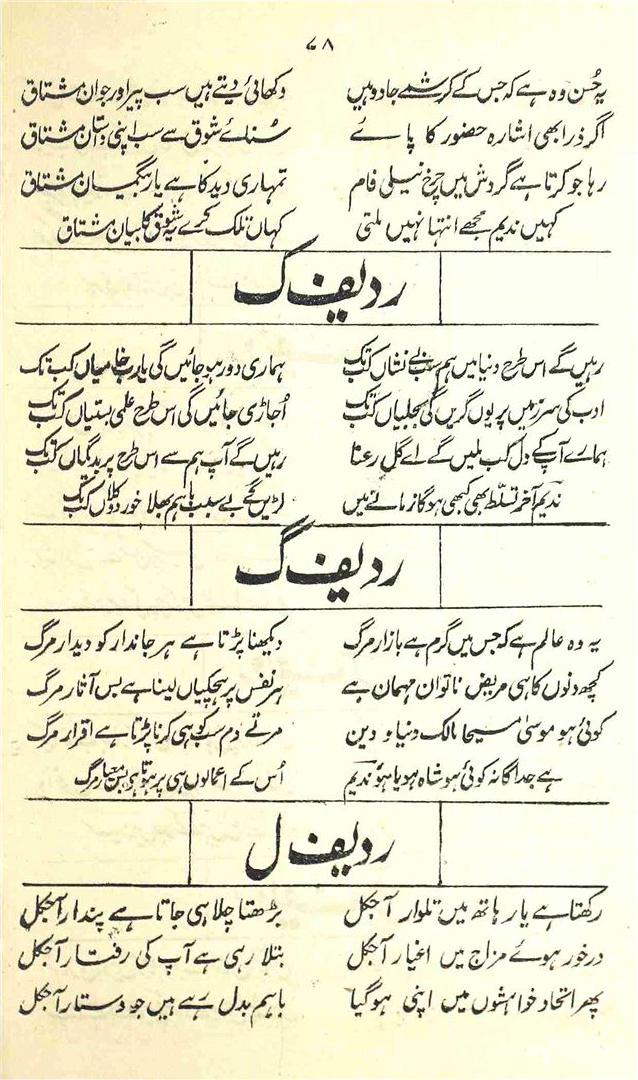 ۷۸
یہ حُسن وہ ہے کہ جس کے کرشمے جادو ہیں دکھائی دیتے ہیں سب پیر اور جوان مشتاق
اگر ذرا بھی اشارہ حضور کا پائے سُنائے شوق سے سب اپنی داستان مشتاق
رہا جو کرتا ہے گردش میں چرخ نیلی فام تمہاری دید کا ہے یار بیگمیان مشتاق
کہیں ندیم مجھے انتہا نہیں ملتی کہاں تلک کرے یہ شوق کا بیان مشتاق
ردیف ک
رہیں گے اس طرح دنیا میں ہم سب بے نشاں کب تک ہماری دور ہو جائیں گی یارب خامیاں کب تک
ادب کی سرزمیں پر یوں گریں گی بجلیاں کب تک اُجاڑی جائیں گی اس طرح علمی بستیاں کب تک
ہمارے آپ کے دل کب ملیں گے اے گل رعنا رہیں گے آپ ہم سے اس طرح پر بدگماں کب تک
ندیم آخر تسلط بھی کبھی ہوگا زمانے میں لڑیں گے بے سبب باہم بھلا خورد و کلاں کب تک
ردیف گ
یہ وہ عالم ہے کہ جس میں گرم ہے بازار مرگ دیکھنا پڑتا ہے ہر جاندار کو دیدار مرگ
کچھ دنوں کا ہی مریض ناتواں مہمان ہے ہر نفس پر ہچکیاں لینا ہے بس آثار مرگ
کوئی ہو موسیٰ مسیحا مالک دنیا و دین مرتے دم سب کو ہی کرنا پڑتا ہے اقرار مرگ
ہے جداگانہ کوئی ہو شاہ ہو یا ہو ندیم اُس کے اعمالوں ہی پر ہوتا ہے بس معیار مرگ
ردیف ل
رکھتا ہے یار ہاتھ میں تلوار آجکل بڑھتا چلا ہی جاتا ہے پندار آجکل
درخور ہوئے مزاج میں اغیار آجکل بتلا رہی ہے آپ کی رفتار آجکل
پھر اتحاد خواہشوں میں اپنی ہوگیا باہم بدل رہے ہیں جو دستار آجکل